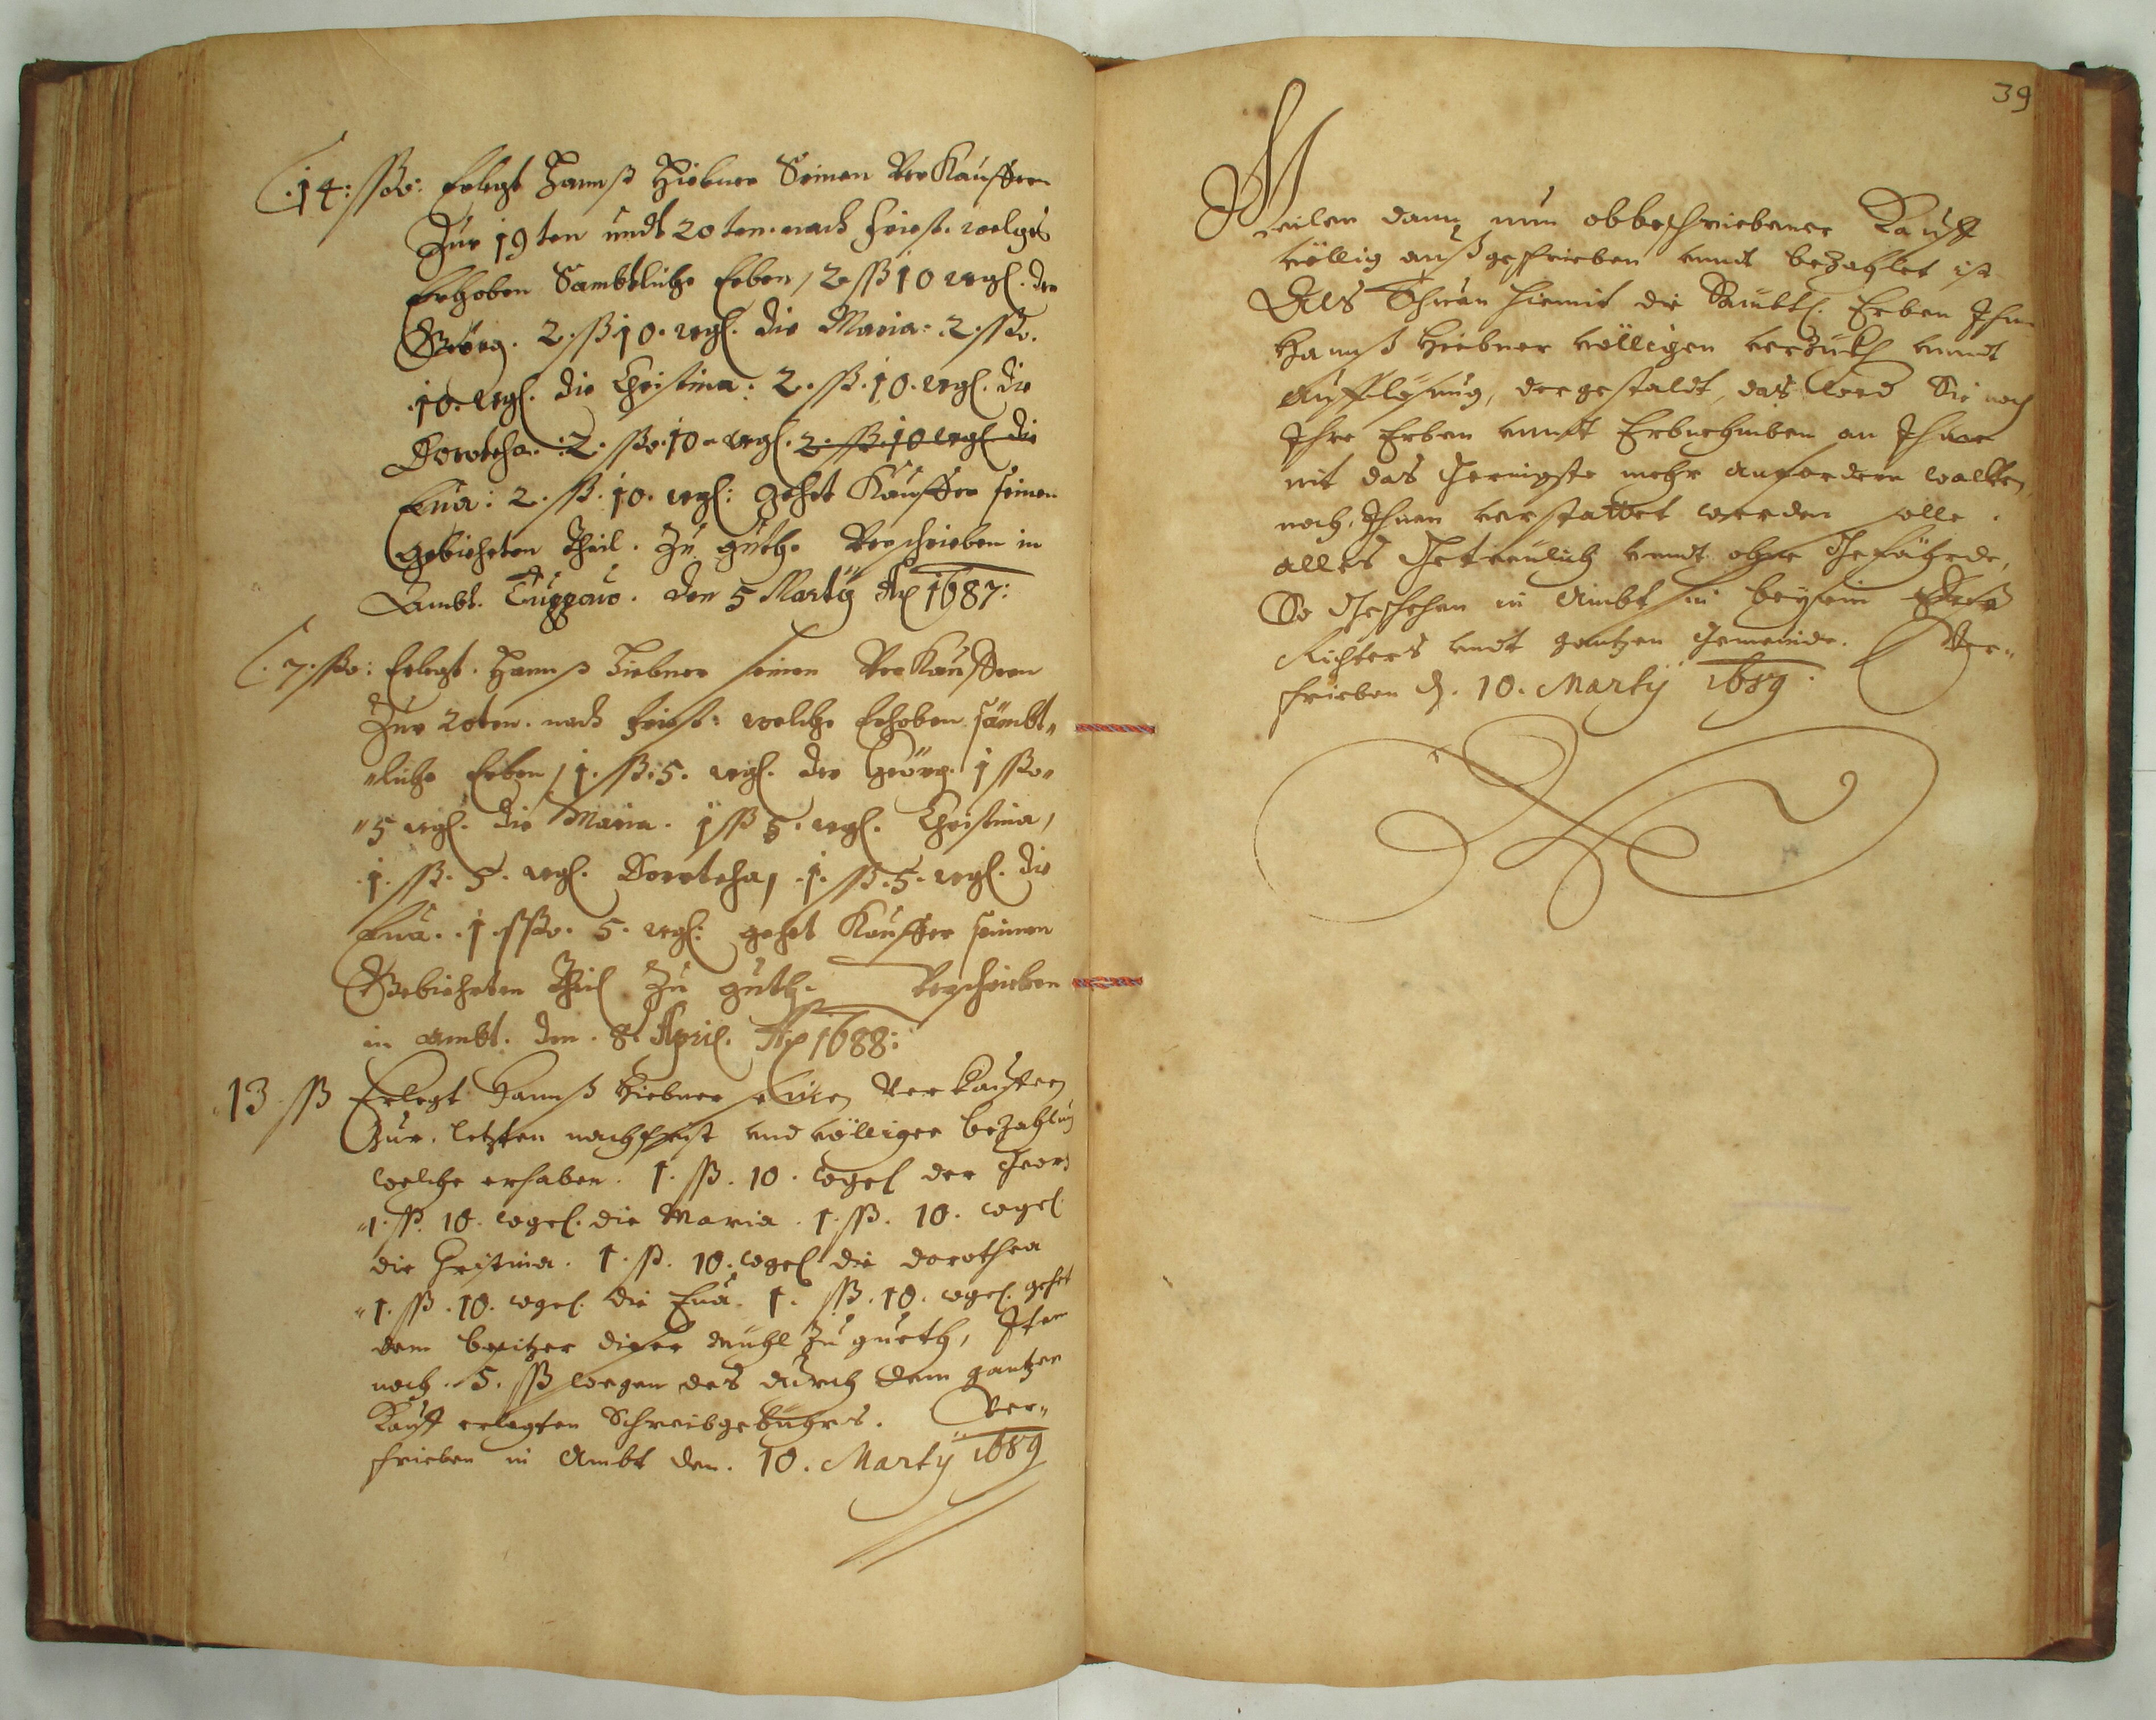 .14: ßo: Erlegt Hannß Hiebner Seinen Verkauffern
Zur 19ten undt 20ten. nach frist. welges
Erhoben Sambtliche Erben, 2 ßß 10 wgl. der
Geörg. 2. ß 10. wgl. die Maria: 2. ßo.
.10. wgl. die Christina: 2. ß. 10. wgl. die
Dorotehа. :2. ßo. 10. wgl. 2. ß. 10 wgl die
Eua: 2. ß. 10. wgl: gehet Kauffer seinen
gebiehrten Theil. Zu guth. Verschrieben in
Ambt. Duppaw. den 5 Martÿ Ao 1687:
.7. ßo: Erlegt. Hannß Hiebner seinen Verkauffern
Zur 20ten. nach frist: welche Erhoben sämbt"
"liche Erben, 1. ß. 5. wgl. der Geörg. 1 ßo"
"5 wgl. die Maria. 1 ß 5. wgl. Christina,
.1. ß. 5. wgl. Doroteha, .1. ß. 5. wgl. die
Eua. .1. ßo. 5. wgl: gehet Kauffer seinen
Gebiehrten Theil Zu guth. Verschrieben
in Ambt. den. 8t April. Ao 1688:
.13 ß Erlegt Hannß Hiebner seinen Verkauffern
Zur. letzten nachfrist vnd völliger bezahlung
welche erhaben. 1. ß. 10. wgl der Geörg
"1. ß. 10. wgl. die Maria. 1. ß. 10. wgl.
die Christina. 1. ß. 10. wgl die dorothea
"1. ß. 10. wgl. die Eua. 1. ß. 10. wgl. gehet
dem besitzer dieser Muhl zu gueth, Item
noch. 5. ß wegen des durch dem gantzen
Kauff erlegten Schreibgebuhrs. Ver"
schrieben in Ambt den. 10. Martÿ 1689
39
Weilen dann nun obbeschriebener Kauff
völlig außgeschrieben vnndt bezahlet ist
Als Thuen hiemit die Sambtl. Erben Ihme
Hannß Hiebner völligen verzucht vnndt
aufflasung, dergestaldt, das weed Sie noch
Ihre Erben vnndt Erbnehmben an Ihme
nit das Geringste mehr anfordern wolten,
noch Ihnen verstattet werden solle.
alles Getreulich vnndt ohne Gefährde,
So Geschehen in Ambt in beysein
Richters vndt gantzen Gemeinde. Ver"
schrieben d. 10. Martÿ 1689.